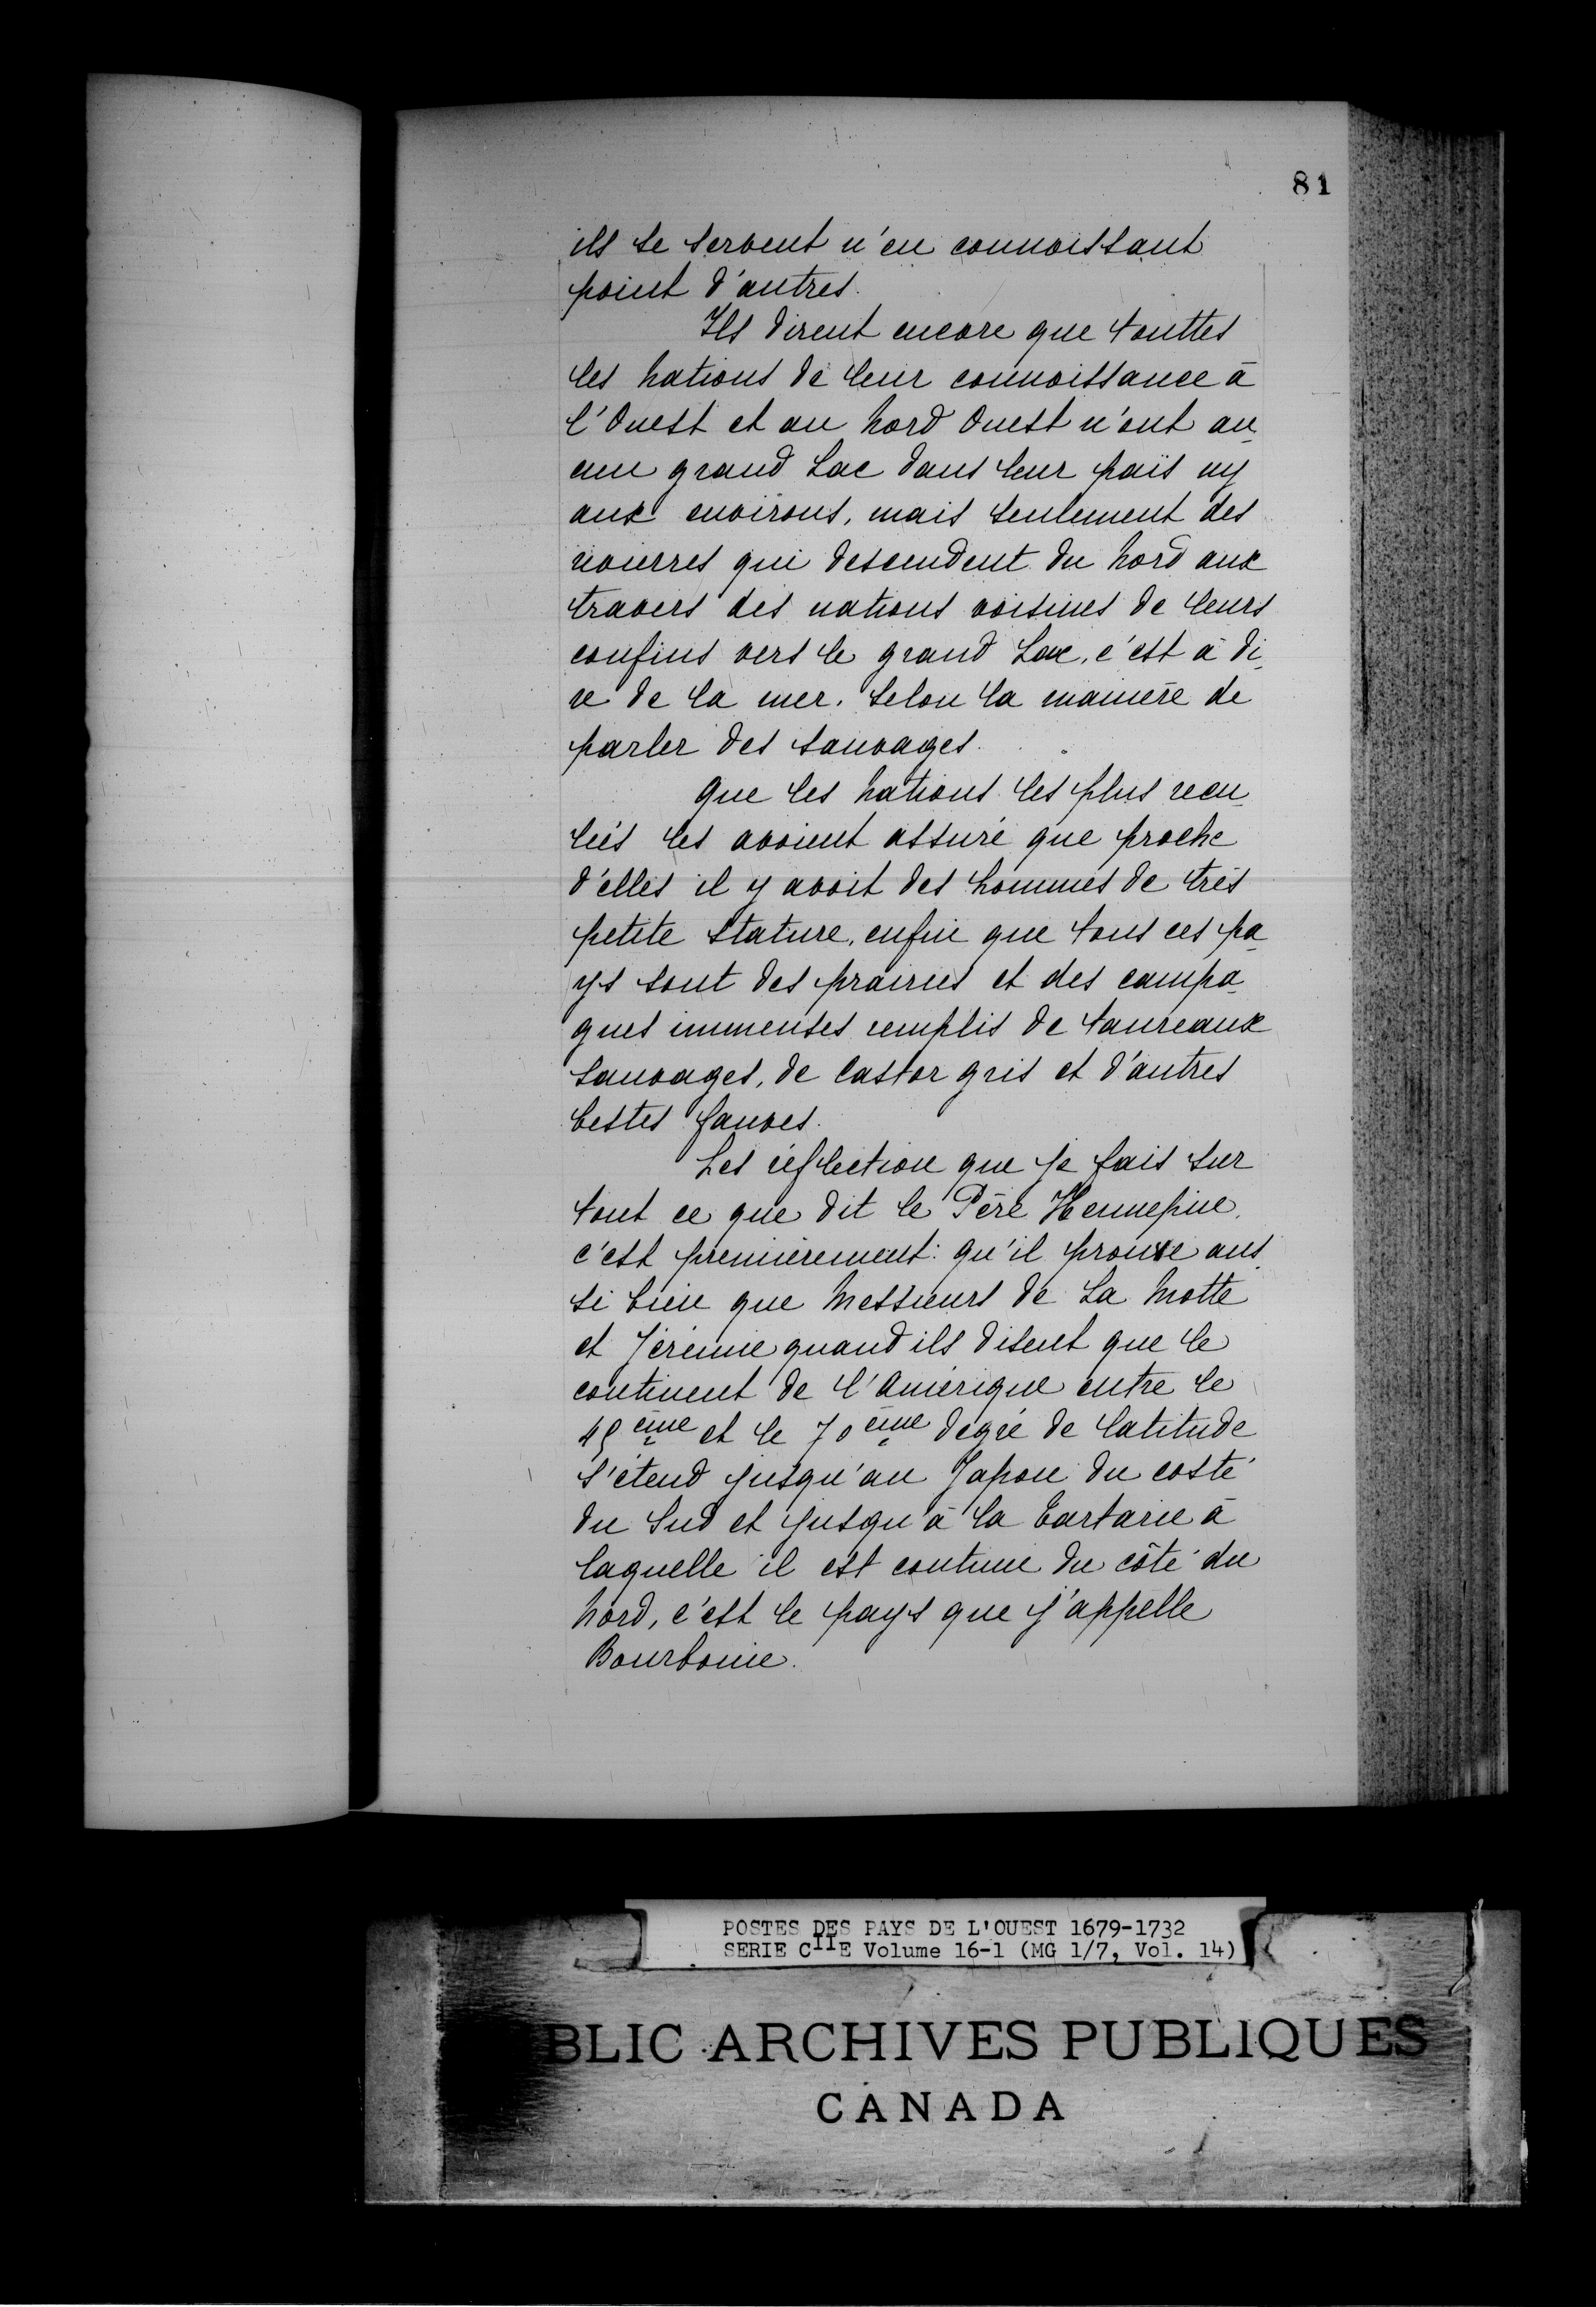 81
ils se servent n'en connoissant
point d'autres.
Ils dirent encore que touttes
les Nations de leur connoissance à
l'Ouest et au Nord Ouest n'ont au-
cun grand Lac dans leur païs ny
aux environs, mais seulement des
rivierres qui descendent du Nord aux
travers des nations voisines de leurs
confins vers le grand Lac, c'est à di-
re de la mer. Selon la manière de
parler des sauvages.
Que les Nations les plus recu-
léés les avoient assuré que proche
d'elles il y avoit des hommes de très
petite stature, enfin que tous ces pa-
ys sont des prairies et des campa-
gnes immenses remplis de taureaux
sauvages, de Castor gris et d'autres
bestes fauves.
Les réflection que je fais sur
tout ce que dit le Père Hennepine,
c'est premièrement: qu'il prouve aus-
si bien que Messieurs de La Motte
et Jérémie quand ils disent que le
continent de l'Amérique entre le
45ème et le 70ème degré de latitude
s'étend jusqu'au Japon du costé
du Sud et jusqu'à la Tartarie à
laquelle il est continu du côté du
Nord, c'est le pays que j'appelle
Bourbonie.
POSTES DES PAYS DE L'OUEST 1679-1732
SERIE CIIE Volume 16-1 (MG 1/7, Vol. 14)
BLIC ARCHIVES PUBLIQUES
CANADA